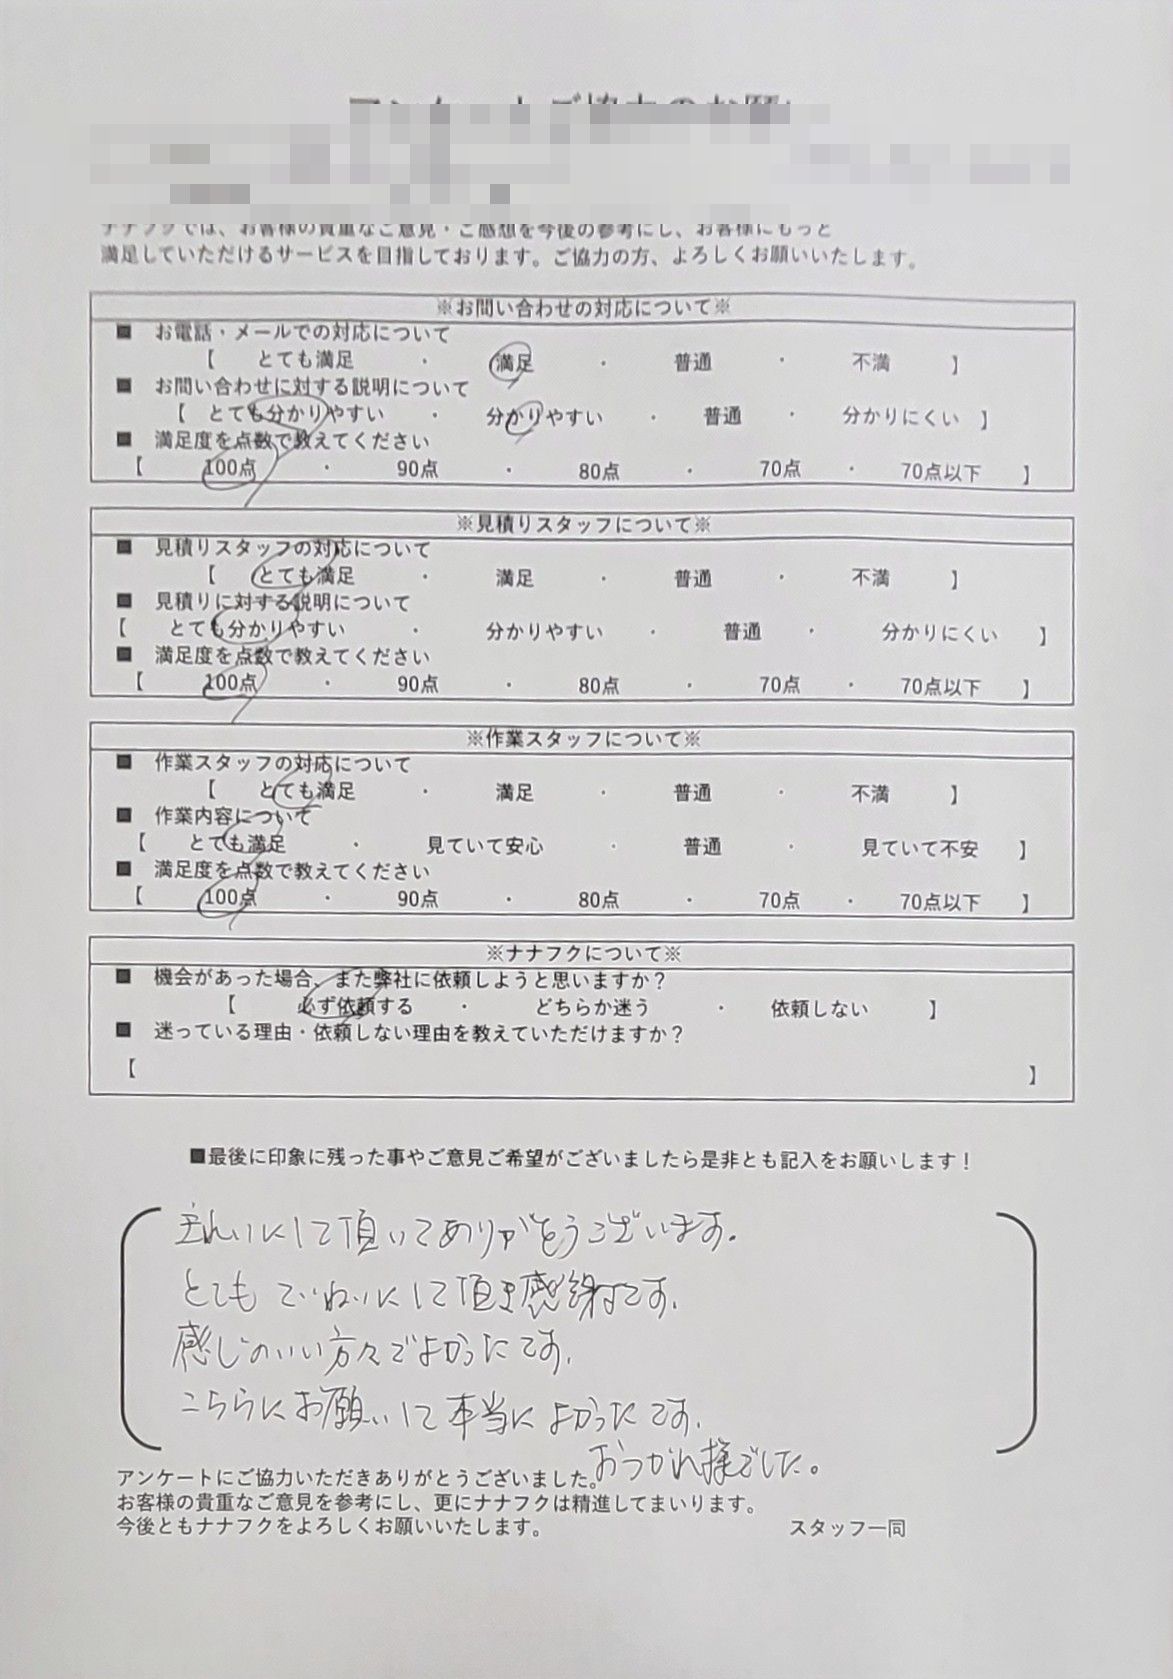 アンケートご協力のお願い
ナナフクでは、お客様の貴重なご意見・ご感想を今後の参考にし、お客様にもっと
満足していただけるサービスを目指しております。ご協力の方、よろしくお願いいたします。
※お問い合わせの対応について※
■ お電話・メールでの対応について
【 とても満足 ・ 満足 ・ 普通 ・ 不満 】
■ お問い合わせに対する説明について
【 とても分かりやすい ・ 分かりやすい ・ 普通 ・ 分かりにくい 】
■ 満足度を点数で教えてください
【 100点 ・ 90点 ・ 80点 ・ 70点 ・ 70点以下 】
※見積りスタッフについて※
■ 見積りスタッフの対応について
【 とても満足 ・ 満足 ・ 普通 ・ 不満 】
■ 見積りに対する説明について
【 とても分かりやすい ・ 分かりやすい ・ 普通 ・ 分かりにくい 】
■ 満足度を点数で教えてください
【 100点 ・ 90点 ・ 80点 ・ 70点 ・ 70点以下 】
※作業スタッフについて※
■ 作業スタッフの対応について
【 とても満足 ・ 満足 ・ 普通 ・ 不満 】
■ 作業内容について
【 とても満足 ・ 見ていて安心 ・ 普通 ・ 見ていて不安 】
■ 満足度を点数で教えてください
【 100点 ・ 90点 ・ 80点 ・ 70点 ・ 70点以下 】
※ナナフクについて※
■ 機会があった場合、また弊社に依頼しようと思いますか？
【 必ず依頼する ・ どちらか迷う ・ 依頼しない 】
■ 迷っている理由・依頼しない理由を教えていただけますか？
【 】
■最後に印象に残った事やご意見ご希望がございましたら是非とも記入をお願いします！
きれいにして頂いてありがとうございます。
とてもていねいにして頂き感謝です。
感じのいい方々でよかったです。
こちらにお願いして本当によかったです。
おつかれ様でした。
アンケートにご協力いただきありがとうございました。
お客様の貴重なご意見を参考にし、更にナナフクは精進してまいります。
今後ともナナフクをよろしくお願いいたします。 スタッフ一同